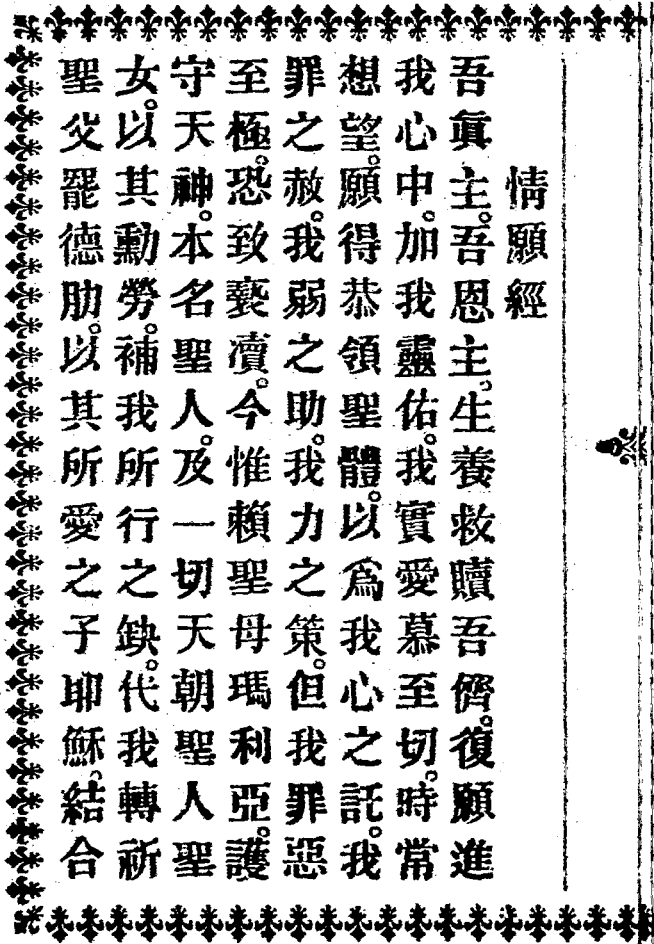 情願經
吾眞主。吾恩主。生養救贖吾儕。復願進
我心中。加我靈佑。我實愛慕至切。時常
想望。願得恭領聖體。以爲我心之託。我
罪之赦。我弱之助。我力之策。但我罪惡
至極。恐致褻瀆。今惟賴聖母瑪利亞。護
守天神。本名聖人。及一切天朝聖人聖
女。以其勳勞。補我所行之缺。代我轉祈
聖父罷德肋。以其所愛之子耶穌。結合